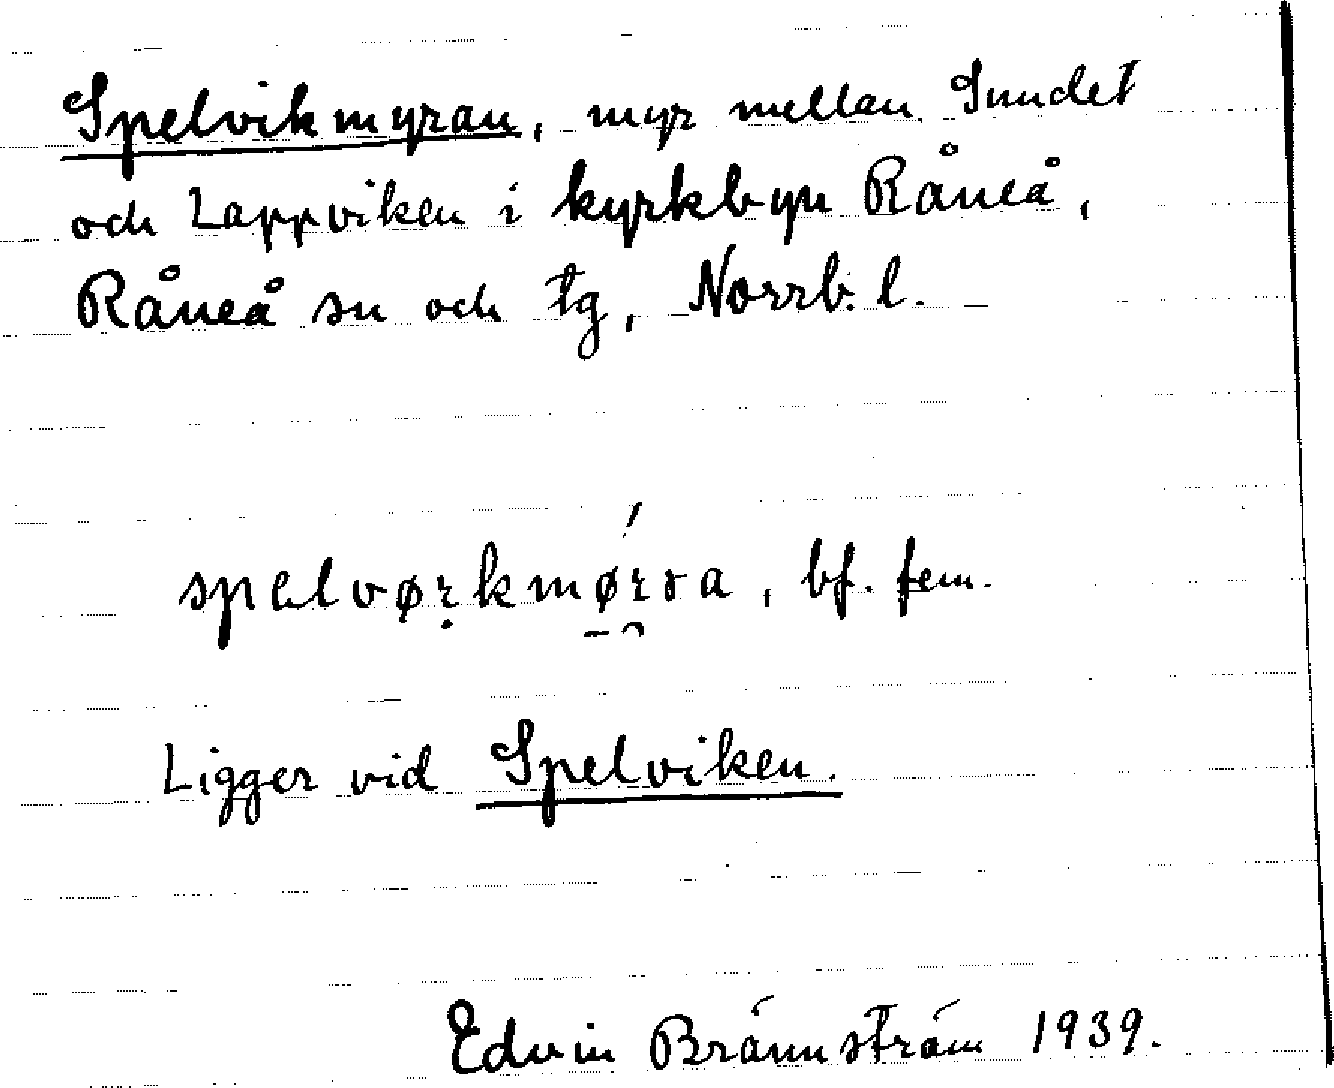 Spelvikmyran, myr mellan Sundet
och Lappviken i kyrkbyn Råneå,
Råneå sn och tg, Norrb. l.
bf. fem.
Ligger vid Spelviken.
Edvin Brännström 1939.